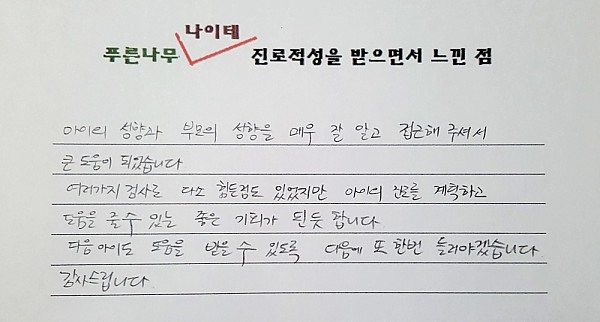 나이테
푸른나무 진로적성을 받으면서 느낀 점
아이의 성향과 부모의 성향을 매우 잘 알고 접근해 주셔서
큰 도움이 되었습니다
여러가지 검사로 다소 힘든점도 있었지만 아이의 진로를 계획하고
도움을 줄수 있는 좋은 기회가 된듯 합니다
다음 아이도 도움을 받을 수 있도록 다음에 또 한번 들러야겠습니다.
감사드립니다.